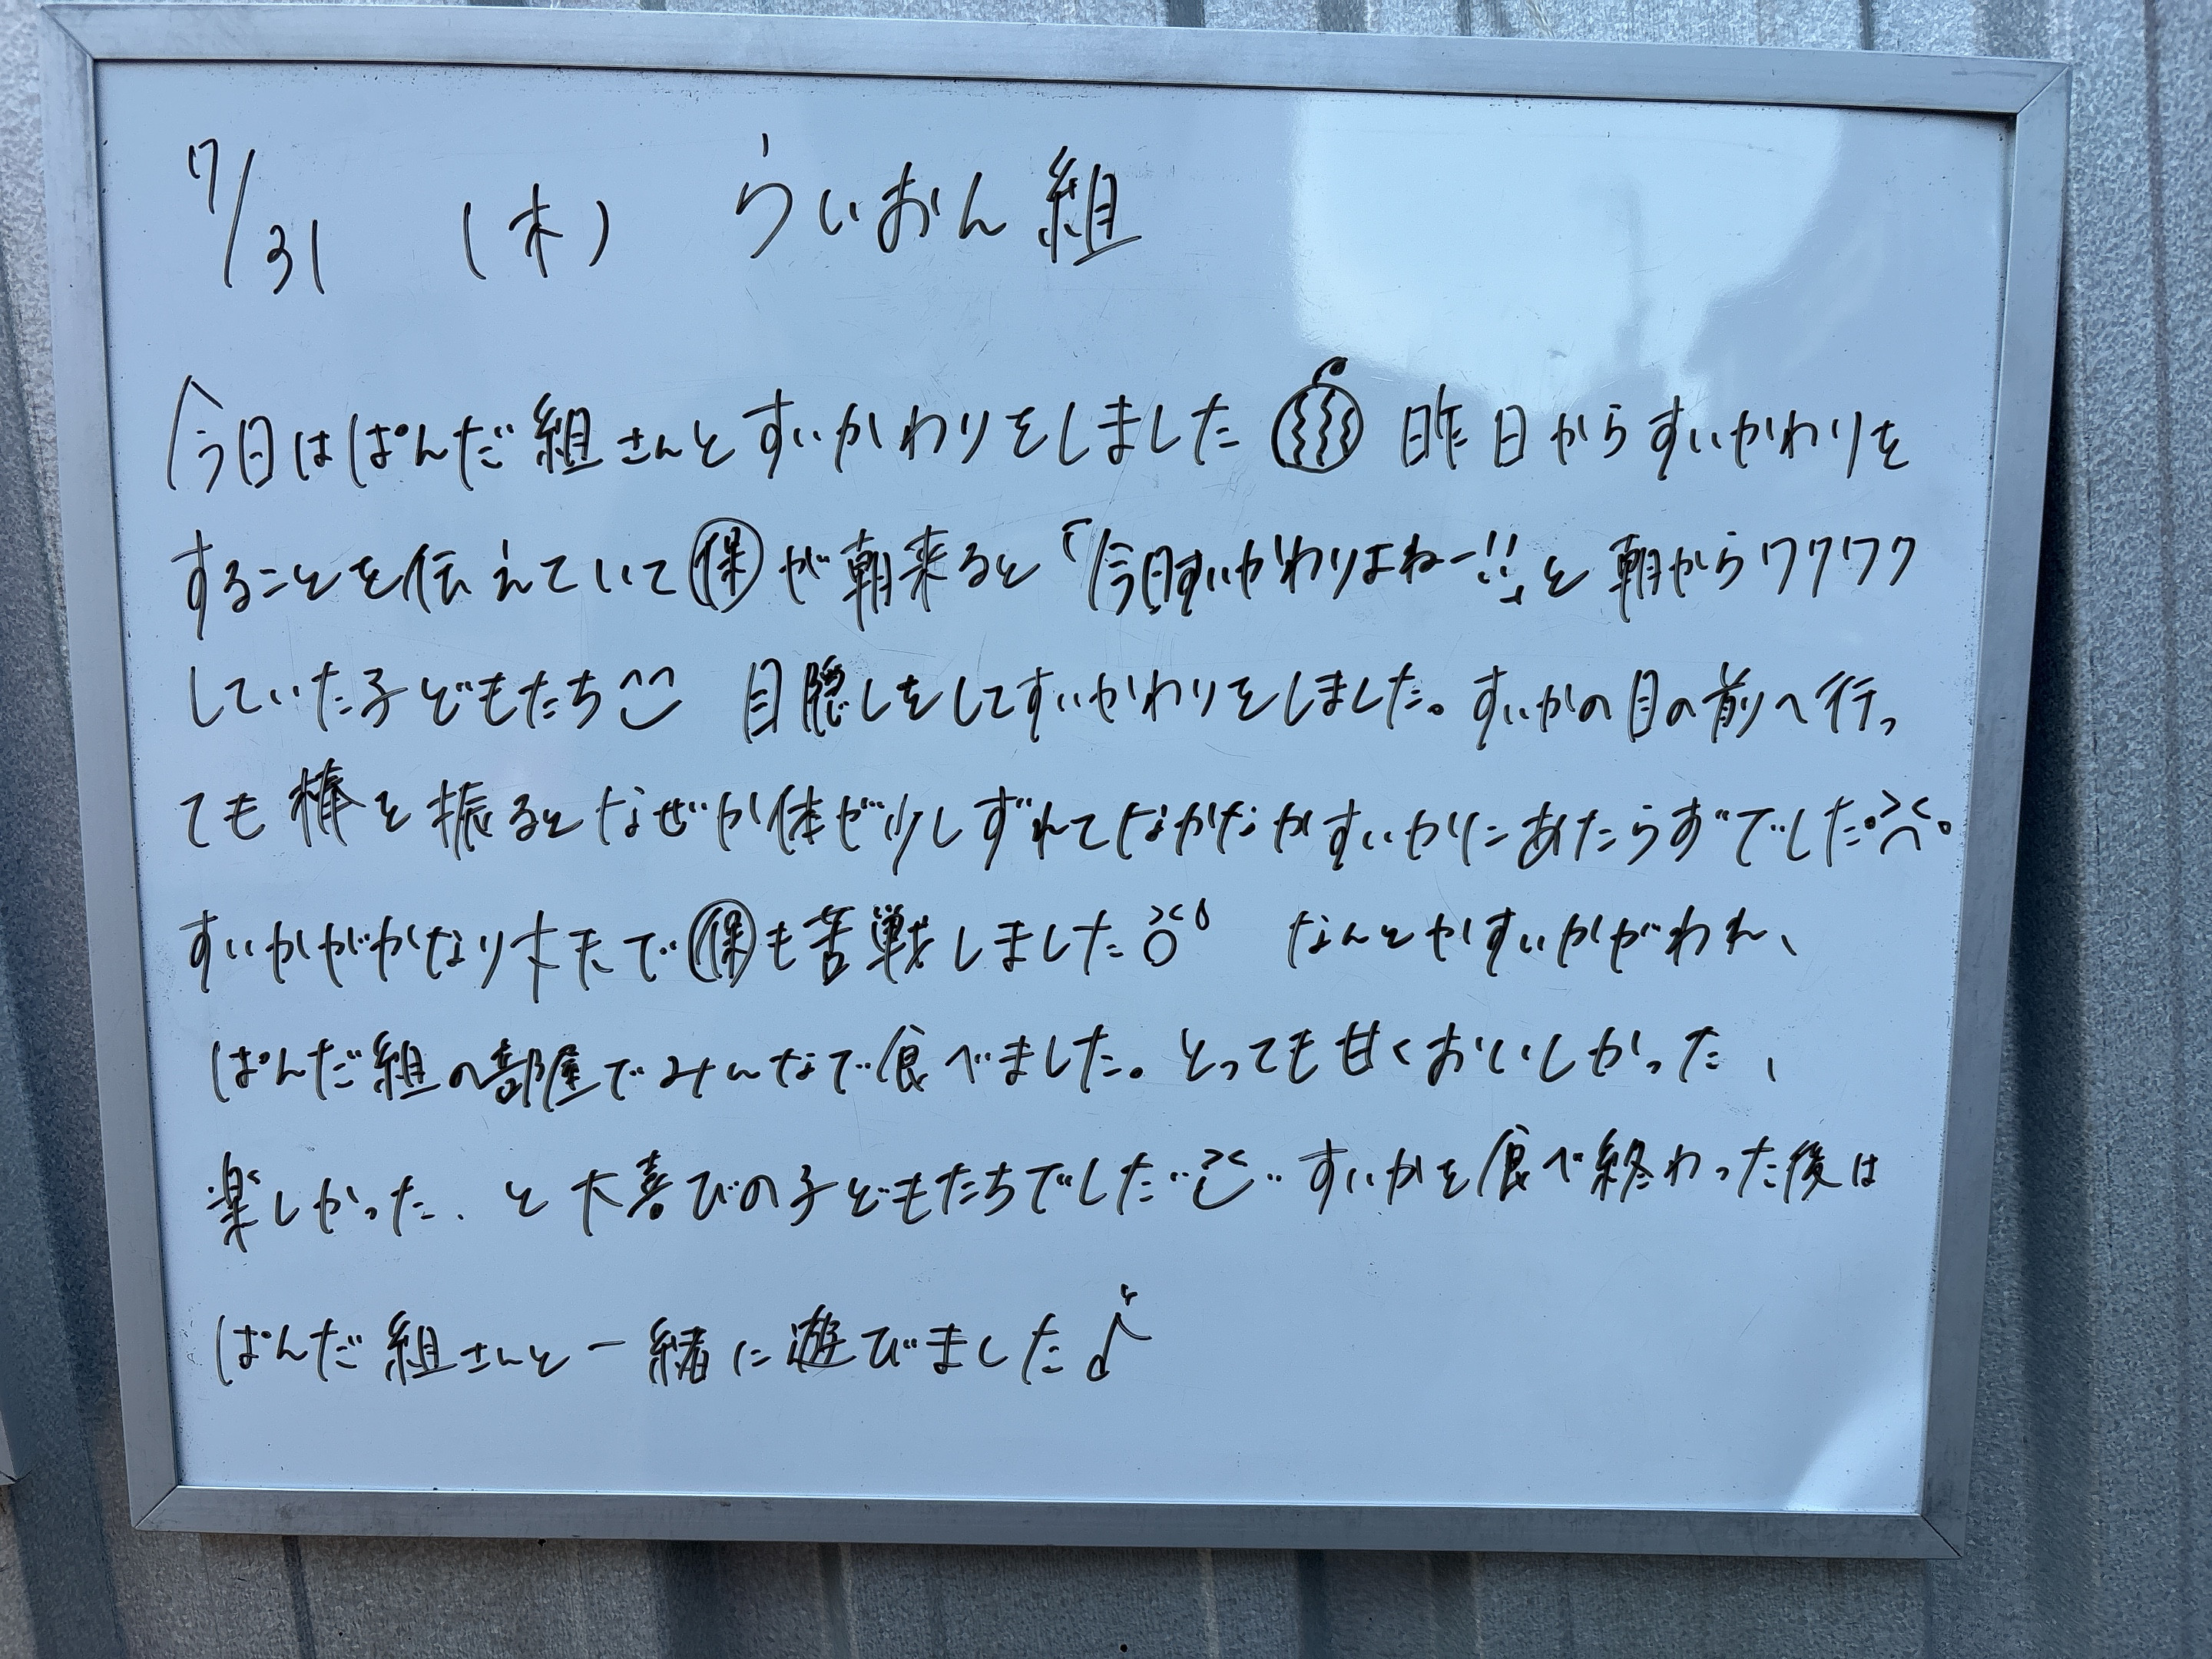 7/31 (木) らいおん組
今日はぱんだ組さんとすいかわりをしました 昨日からすいかわりを
することを伝えていて㊩が朝来ると「今日すいかわりよねー!!」と朝からワクワク
していた子どもたち 目隠しをしてすいかわりをしました。すいかの目の前へ行っ
ても棒を振るとなぜか体が少しずれてなかなかすいかにあたらずでした
すいかがかなり丈夫で㊩も苦戦しました なんとかすいかがわれ、
ぱんだ組の部屋でみんなで食べました。とっても甘くおいしかった、
楽しかった、と大喜びの子どもたちでした すいかを食べ終わった後は
ぱんだ組さんと一緒に遊びました♪